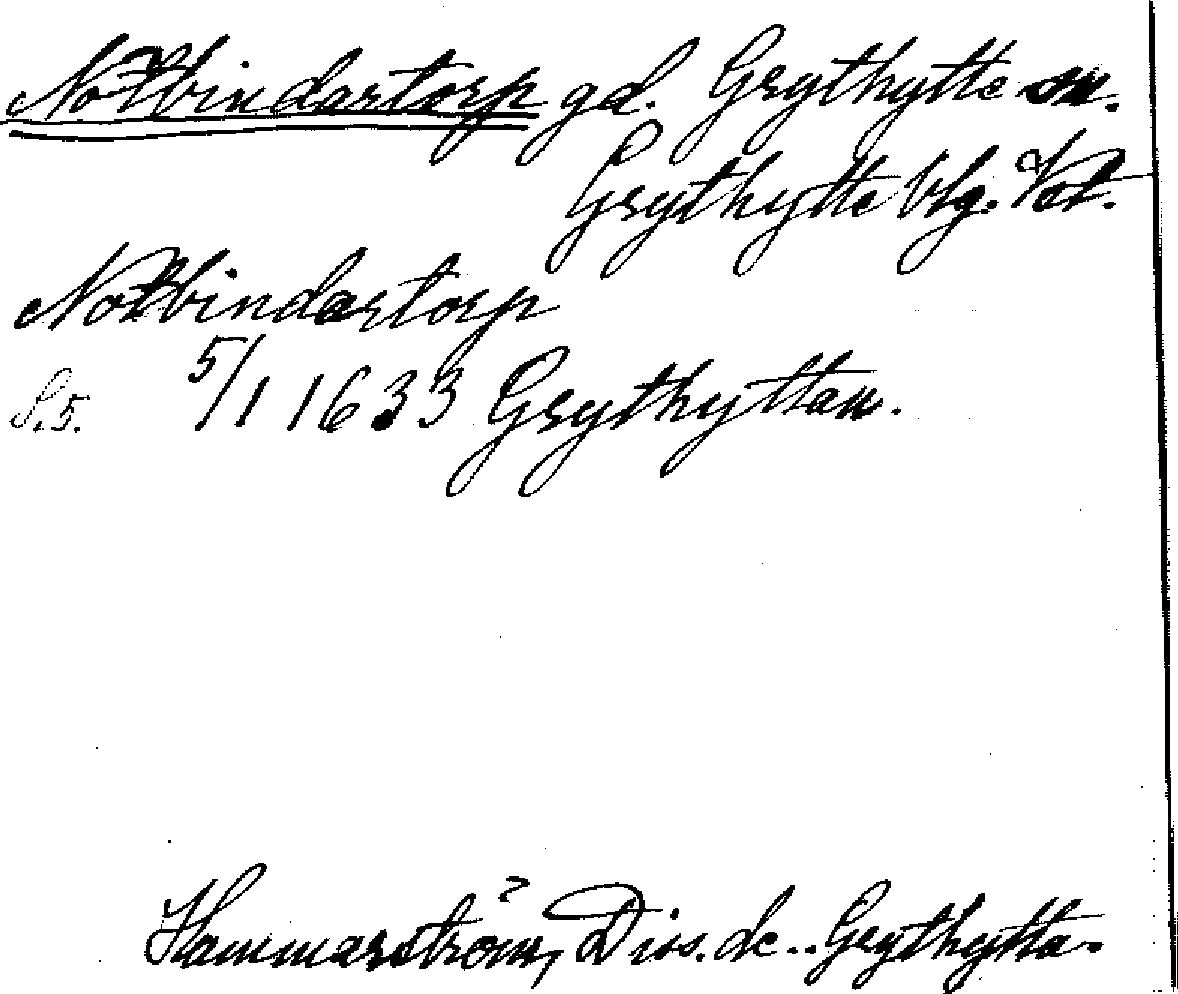 Notbindartorp gd. Grythytte sn.
Grythytte blg. Vstm.
Notbindartorp
S.5. 5/1 1633 Grythyttan.
Hammarström, Diss. de.. Grythytta-